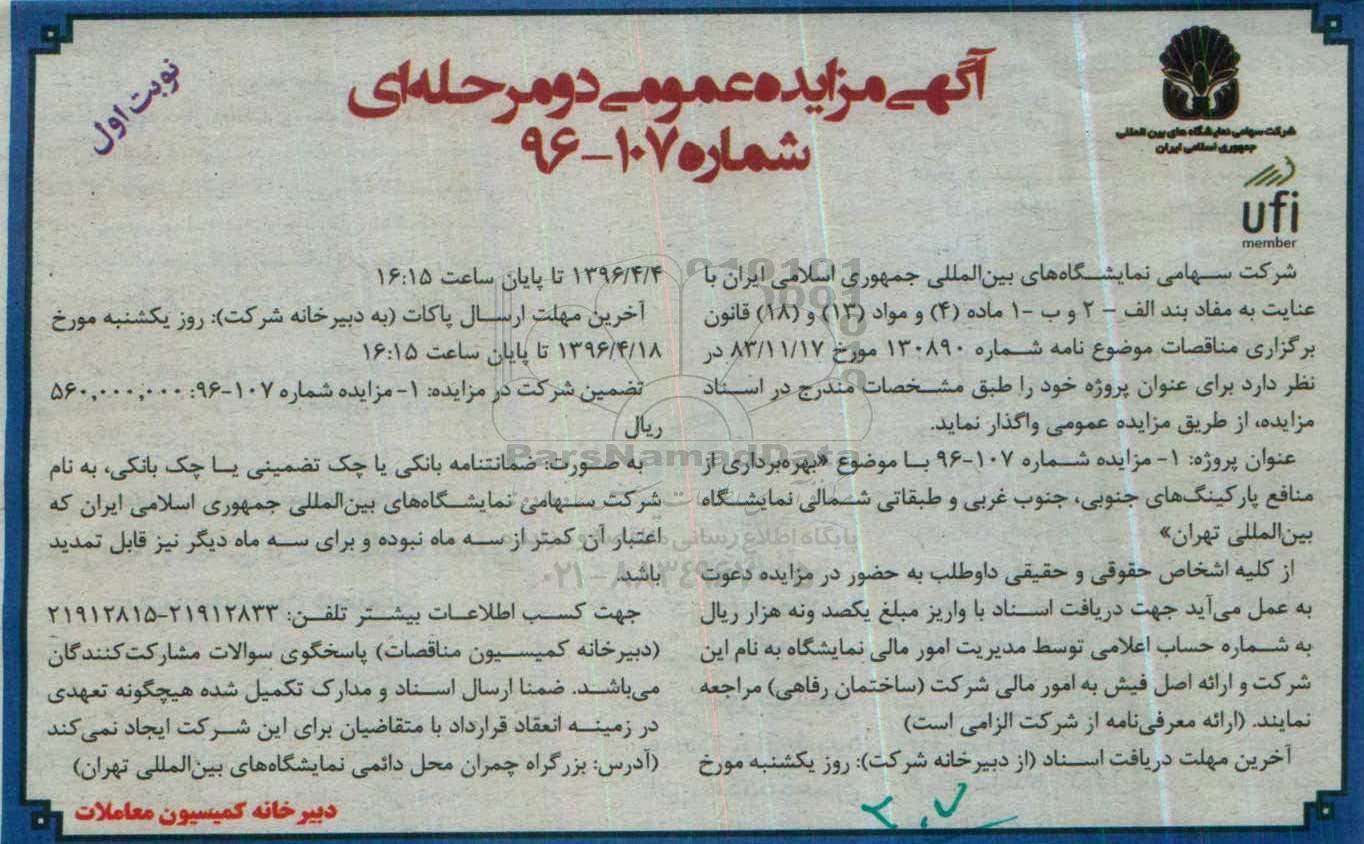 شرکت سهامی نمایشگاه های بین المللی
جمهوری اسلامی ایران
ufi
member
آگهی مزایده عمومی دو مرحله‌ای
شماره ۱۰۷-۹۶
نوبت اول
شرکت سهامی نمایشگاه‌های بین‌المللی جمهوری اسلامی ایران با
عنایت به مفاد بند الف - ۲ و ب -۱ ماده (۴) و مواد (۱۳) و (۱۸) قانون
برگزاری مناقصات موضوع نامه شماره ۱۳۰۸۹۰ مورخ ۸۳/۱۱/۱۷ در
نظر دارد برای عنوان پروژه خود را طبق مشخصات مندرج در اسناد
مزایده، از طریق مزایده عمومی واگذار نماید.
عنوان پروژه: ۱- مزایده شماره ۱۰۷-۹۶ با موضوع «بهره‌برداری از
منافع پارکینگ‌های جنوبی، جنوب غربی و طبقاتی شمالی نمایشگاه
بین‌المللی تهران»
از کلیه اشخاص حقوقی و حقیقی داوطلب به حضور در مزایده دعوت
به عمل می‌آید جهت دریافت اسناد با واریز مبلغ یکصد ونه هزار ریال
به شماره حساب اعلامی توسط مدیریت امور مالی نمایشگاه به نام این
شرکت و ارائه اصل فیش به امور مالی شرکت (ساختمان رفاهی) مراجعه
نمایند. (ارائه معرفی‌نامه از شرکت الزامی است)
آخرین مهلت دریافت اسناد (از دبیرخانه شرکت): روز یکشنبه مورخ
۱۳۹۶/۴/۴ تا پایان ساعت ۱۶:۱۵
آخرین مهلت ارسال پاکات (به دبیرخانه شرکت): روز یکشنبه مورخ
۱۳۹۶/۴/۱۸ تا پایان ساعت ۱۶:۱۵
تضمین شرکت در مزایده: ۱- مزایده شماره ۱۰۷-۹۶: ۵۶۰,۰۰۰,۰۰۰
ریال
به صورت: ضمانتنامه بانکی یا چک تضمینی یا چک بانکی، به نام
شرکت سهامی نمایشگاه‌های بین‌المللی جمهوری اسلامی ایران که
اعتبار آن کمتر از سه ماه نبوده و برای سه ماه دیگر نیز قابل تمدید
باشد.
جهت کسب اطلاعات بیشتر تلفن: ۲۱۹۱۲۸۳۳-۲۱۹۱۲۸۱۵
(دبیرخانه کمیسیون مناقصات) پاسخگوی سوالات مشارکت‌کنندگان
می‌باشد. ضمنا ارسال اسناد و مدارک تکمیل شده هیچگونه تعهدی
در زمینه انعقاد قرارداد با متقاضیان برای این شرکت ایجاد نمی‌کند
(آدرس: بزرگراه چمران محل دائمی نمایشگاه‌های بین‌المللی تهران)
دبیرخانه کمیسیون معاملات
ParsNamadData